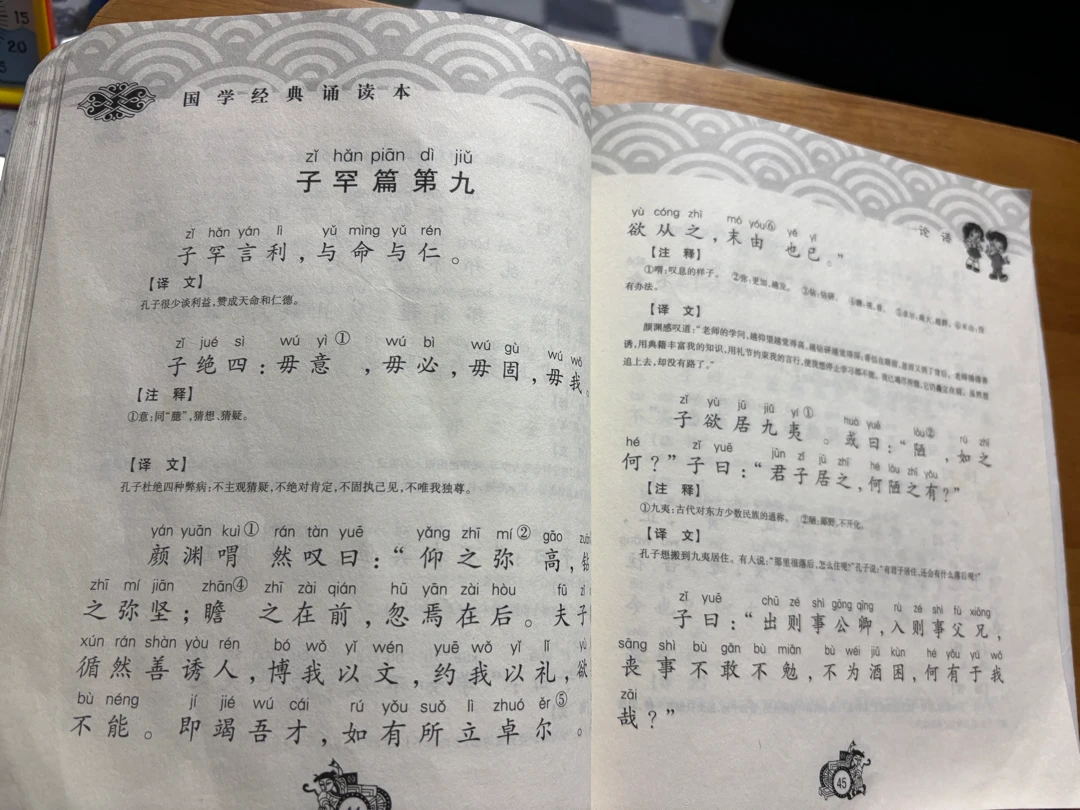 15
20
5
国学经典诵读本
zǐ hǎn piān dì jiǔ
子罕篇第九
zǐ hǎn yán lì yǔ mìng yǔ rén
子罕言利，与命与仁。
【译文】
孔子很少谈利益，赞成天命和仁德。
zǐ jué sì wú yì① wú bì wú gù wú wǒ
子绝四：毋意，毋必，毋固，毋我。
【注释】
①意：同“臆”，猜想、猜疑。
【译文】
孔子杜绝四种弊病：不主观猜疑，不绝对肯定，不固执己见，不唯我独尊。
yán yuān kuì① rán tàn yuē yǎng zhī mí② gāo
颜渊喟然叹曰：“仰之弥高，钻
zhī mí jiān zhān④ zhī zài qián hū yān zài hòu fū
之弥坚；瞻之在前，忽焉在后。夫子
xún rán shàn yòu rén bó wǒ yǐ wén yuē wǒ yǐ lǐ
循然善诱人，博我以文，约我以礼，欲
bù néng jí jié wú cái rú yǒu suǒ lì zhuó ěr⑤
不能。即竭吾才，如有所立卓尔。
论语
yù cóng zhī mò yóu⑥ yě yǐ
欲从之，末由也已。”
【注释】
①喟：叹息的样子。 ②弥：更加，越发。 ③钻：钻研。
有办法。
【译文】
颜渊感叹道：“老师的学问，越仰望越觉得高，越钻研越觉得深；
诱，用典籍丰富我的知识，用礼节约束我的言行，使我想停止学习都不能。
追上去，却没有路了。”
zǐ yù jū jiǔ yí① huò yuē lòu② rú zhī
子欲居九夷。或曰：“陋，如之
hé zǐ yuē jūn zǐ jū zhī hé lòu zhī yǒu
何？”子曰：“君子居之，何陋之有？”
【注释】
①九夷：古代对东方少数民族的通称。 ②陋：鄙野，不开化。
【译文】
孔子想搬到九夷居住。有人说：“那里很落后，怎么住呢？”孔子说：“有君子居住，还会有什么落后呢？”
zǐ yuē chū zé shì gōng qīng rù zé shì fù xiōng
子曰：“出则事公卿，入则事父兄，
sāng shì bù gǎn bù miǎn bù wéi jiǔ kùn hé yǒu yú wǒ
丧事不敢不勉，不为酒困，何有于我
zāi
哉？”
45